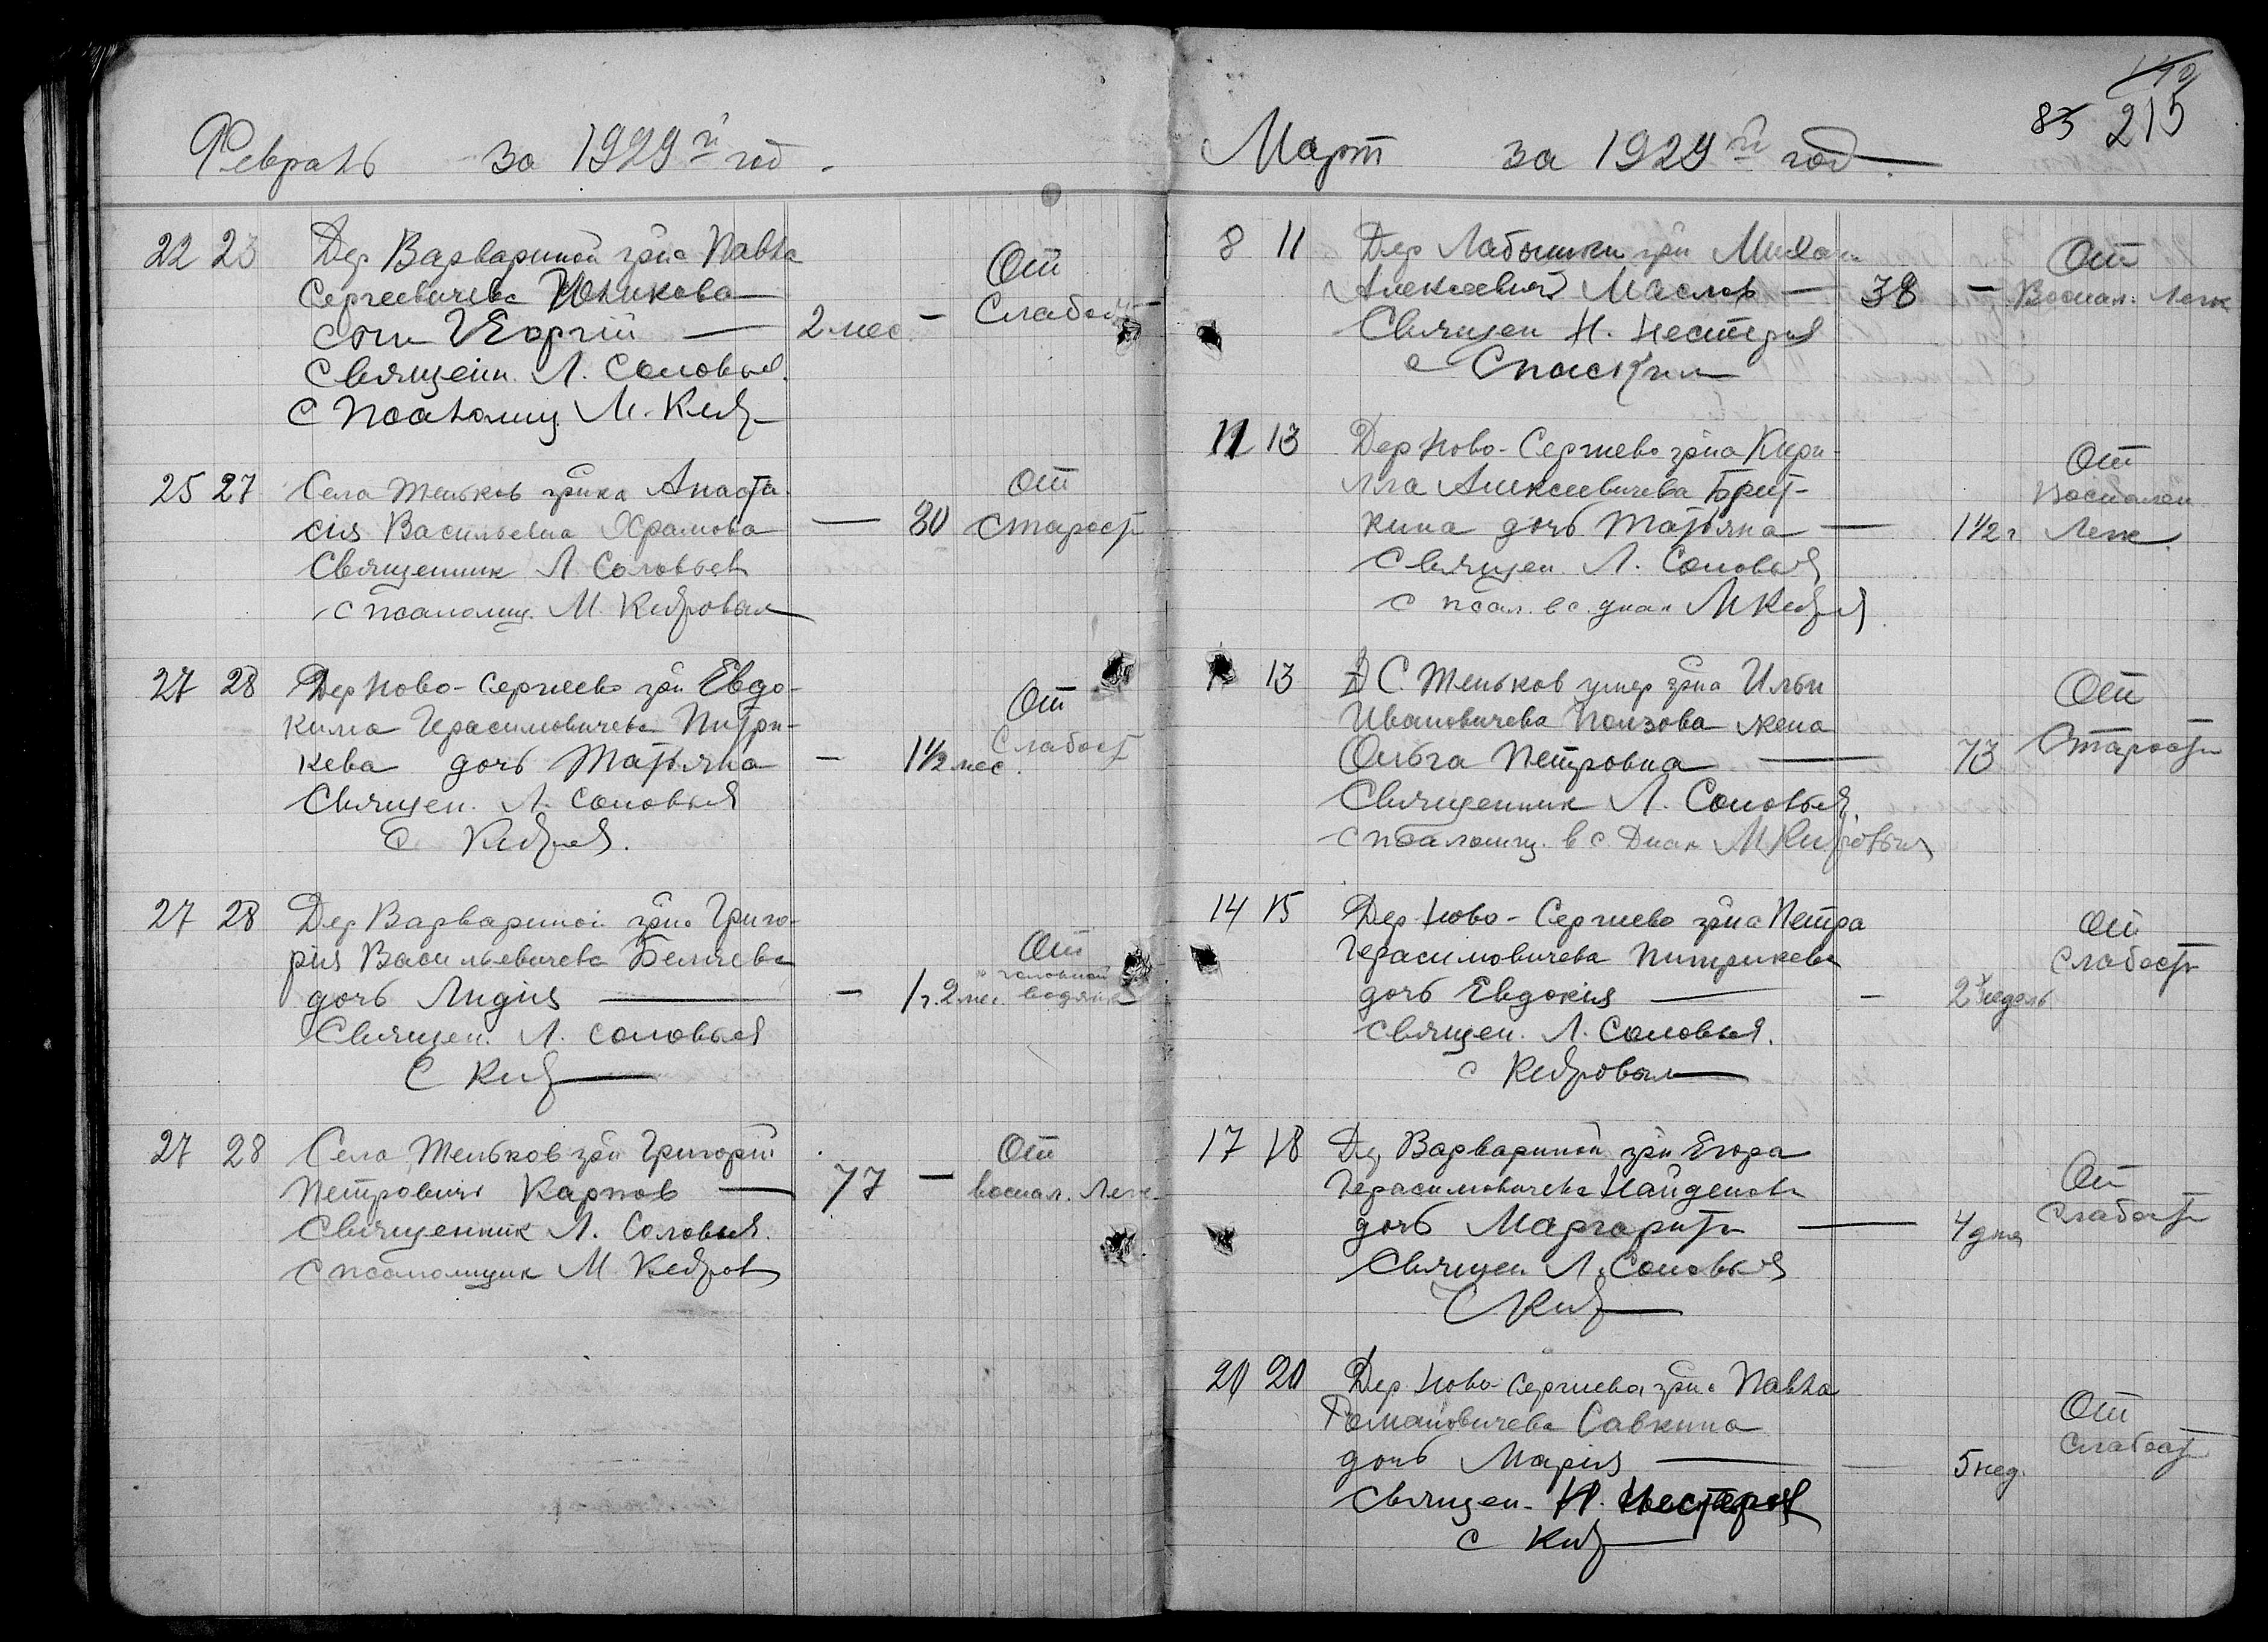 Февраль за 1929й год.
22 23 Дер Варвариной гр-на Павла
Сергеевичева
сын Георгий — 2 мес. — От Слабост
Священ. Л. Соловьев.
с псаломщ М. Кедр
25 27 Села Теньков гр-нка Анаста-
сия Васильевна Храмова — 80 От старост
Священник Л. Соловьев
с псаломщ. М. Кедровым
27 28 Дер Ново-Сергеево гр-н Евдо-
кима Герасимовичева Питри-
кева дочь Татьяна — 1½ мес. От Слабост
Священ. Л. Соловьев
с Кедров.
27 28 Дер Варвариной гр-на Григо-
рия Васильевичева Беляева
дочь Лидия — 1 г. 2 мес. От головной водянк
Священ. Л. Соловьев
с Кедр
27 28 Села Теньков гр-н Григорий
Петрович Карпов — 77 — От воспал. Лег.
Священник Л. Соловьев.
с псаломщик М. Кедров
83 215
Март за 1929й год.
8 11 Дер Лабышки гр-н Михаил
Алексеевич Маслов — 38 — От Воспал. Легк
Священ Н. Нестеров
с Спаским
11 13 Дер Ново-Сергиево гр-на Кири-
лла Алексеевичева
кина дочь Татьяна — 1½ г От Воспален Легк.
Священ. Л. Соловьев
с псал. в с. диак М Кедров
13 С. Теньков умер гр-на Ильи
Ивановичева Ползова жена
Ольга Петровна — 73 От Старости
Священник Л. Соловьев,
с псаломщ. в с. Диак М Кедровым
14 15 Дер Ново-Сергиево гр-на Петра
Герасимовичева Питрикева
дочь Евдокия — 2 недель От Слабости
Священ. Л. Соловьев.
с Кедровым
17 18 Дер Варвариной гр-н Егора
Герасимовичева Найденова
дочь Маргарита — 4 дня От Слабости
Священ Л. Соловьев
С Кедр
20 20 Дер Ново-Сергиева гр-на Павла
Романовичева Савкина
дочь Мария — 5 нед. От слабост
Священ. Н. Нестеров
с Кедр